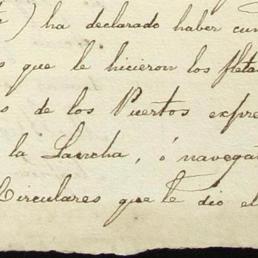 ) ha declarado haber cum
que le hicieron los fleta
s de los Puertos expre
la Lancha, ó navegan
Circulares que le dio el